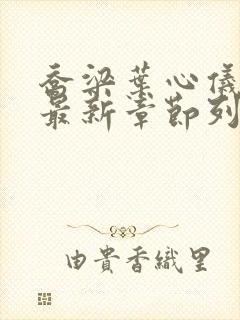 乔梁葉心儀
最新章節列
由貴香織里